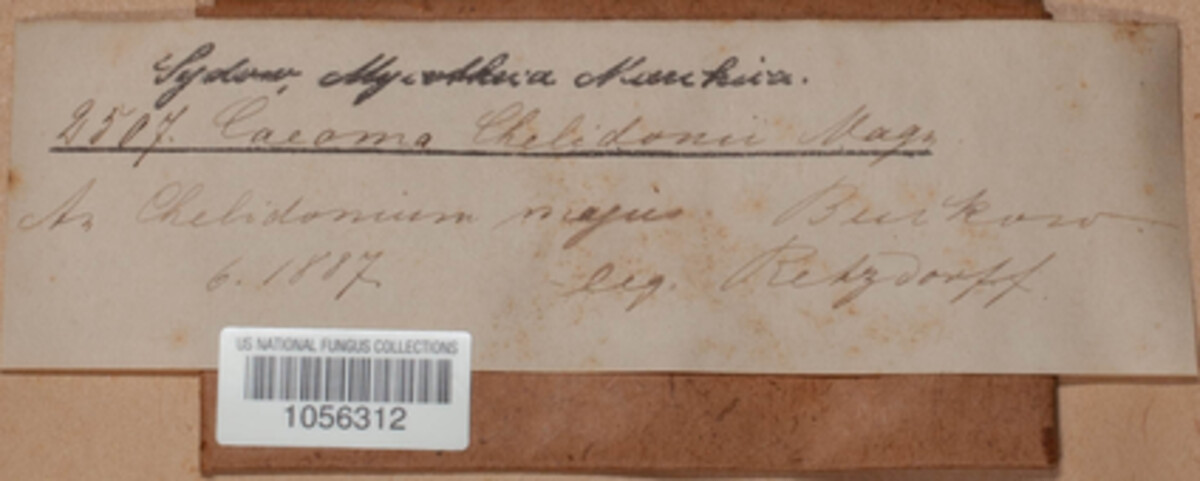 Sydow, Mycotheca Marchica.
2507. Caeoma Chelidonii Magn
An Chelidonium majus. Buckow.
6. 1887 leg. Retzdorff.
US NATIONAL FUNGUS COLLECTIONS
1056312